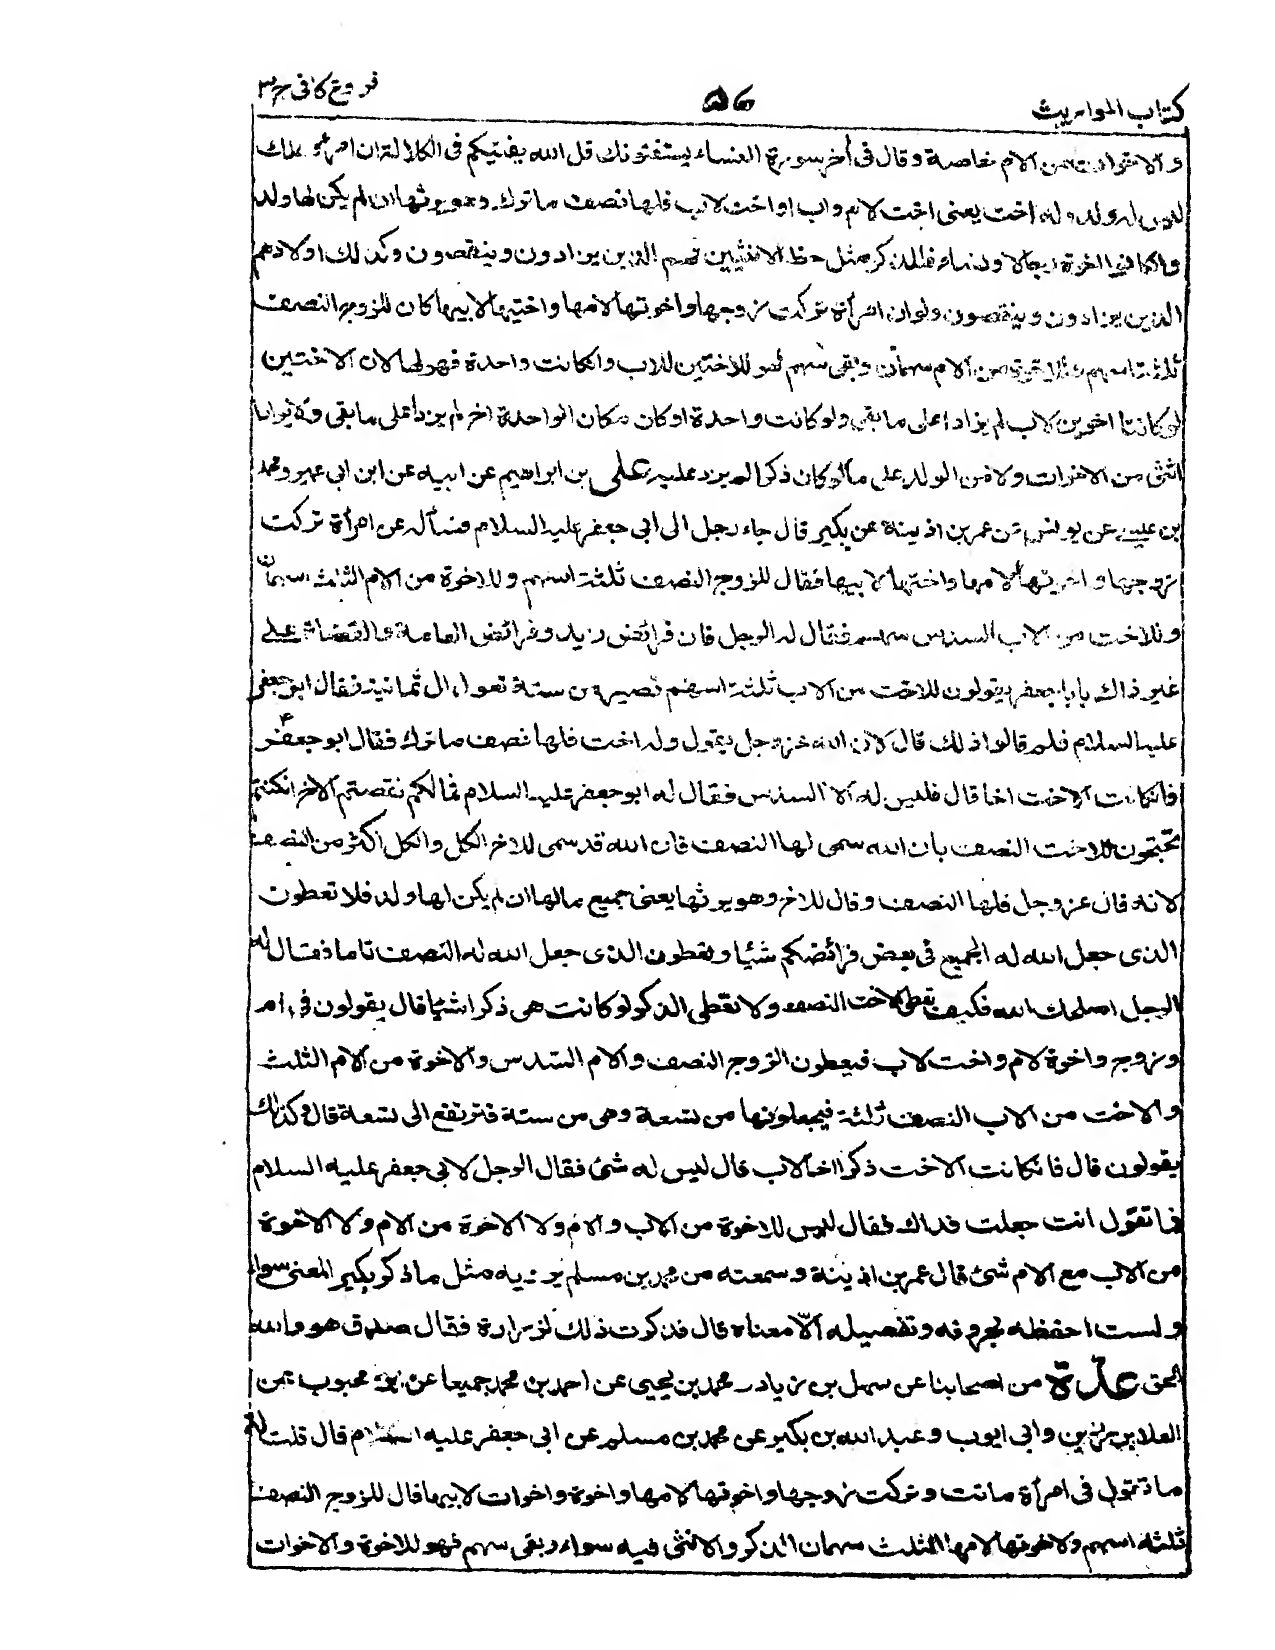 كتاب المواريث ٥٦ فروع كافى ج٣
والاخوات من الام خاصة وقال فى أخر سورة النساء يستفتونك قل الله يفتيكم فى الكلالة ان امرؤ هلك
ليس له ولد وله اخت يعنى اخت لام واب او اخت لاب فلها نصف ما ترك وهو يرثها ان لم يكن لها ولد
وان كانوا اخوة رجالا ونساء فللذكر مثل حظ الانثيين فهم الذين يزادون وينقصون وكذلك اولادهم
الذين يزادون وينقصون ولو ان امرأة تركت زوجها واخوتها لامها واختيها لابيها كان للزوج النصف
ثلثة اسهم وللاخوة من الام سهمان وبقى سهم فهو للاختين للاب وانكانت واحدة فهو لها لان الاختين
لو كانتا اخوين لاب لم يزادا على ما بقى ولو كانت واحدة او كان مكان الواحدة اخ لم يزد على ما بقى ولا يزاد
انثى من الاخوات ولا من الولد على ما لو كان ذكرا لم يزد عليه على بن ابراهيم عن ابيه عن ابن ابى عمير ومحمد
بن عيسى عن يونس عن عمر بن اذينة عن بكير قال جاء رجل الى ابى جعفر عليه السلام فسأله عن امرأة تركت
زوجها واخوتها لامها واختها لابيها فقال للزوج النصف ثلثة اسهم وللاخوة من الام الثلث سهمان
وللاخت من الاب السدس سهم فقال له الرجل فان فرائض زيد وفرائض العامة والقضاة على
غير ذاك يابا جعفر يقولون للاخت من الاب ثلثة اسهم تصير من ستة تعول الى ثمانية فقال ابو جعفر
عليه السلام فلم قالوا ذلك قال لان الله عز وجل يقول وله اخت فلها نصف ما ترك فقال ابو جعفر ع
فانكانت الاخت اخا قال فليس له الا السدس فقال له ابو جعفر عليه السلام فما لكم نقصتم الاخ انكنتم
تحتجون للاخت النصف بان الله سمى لها النصف فان الله قد سمى للاخ الكل والكل اكثر من النصف
لانه قال عز وجل فلها النصف وقال للاخ وهو يرثها يعنى جميع مالها ان لم يكن لها ولد فلا تعطون
الذى جعل الله له الجميع فى بعض فرائضكم شيئا وتعطون الذى جعل الله له النصف تاما فقال له
الرجل اصلحك الله فكيف نعطى الاخت النصف ولا نعطى الذكر لو كانت هى ذكرا شيئا قال يقولون فى ام
وزوج واخوة لام واخت لاب فيعطون الزوج النصف والام السدس والاخوة من الام الثلث
والاخت من الاب النصف ثلثة فيجعلونها من تسعة وهى من ستة فترتفع الى تسعة قال وكذلك
يقولون قال فانكانت الاخت ذكرا اخا لاب قال ليس له شئ فقال الرجل لابى جعفر عليه السلام
فما تقول انت جعلت فداك فقال ليس للاخوة من الاب والام ولا الاخوة من الام ولا الاخوة
من الاب مع الام شئ قال عمر بن اذينة وسمعته من محمد بن مسلم يرويه مثل ما ذكر بكير المعنى سواء
ولست احفظه بحروفه وتفصيله الا معناه قال فذكرت ذلك لزرارة فقال صدق هو والله
الحق عدة من اصحابنا عن سهل بن زياد ومحمد بن يحيى عن احمد بن محمد جميعا عن ابن محبوب عن
العلا بن رزين وابى ايوب وعبد الله بن بكير عن محمد بن مسلم عن ابى جعفر عليه السلام قال قلت له
ما تقول فى امرأة ماتت وتركت زوجها واخوتها لامها واخوة واخوات لابيها قال للزوج النصف
ثلثة اسهم ولاخوتها لامها الثلث سهمان الذكر والانثى فيه سواء وبقى سهم فهو للاخوة والاخوات